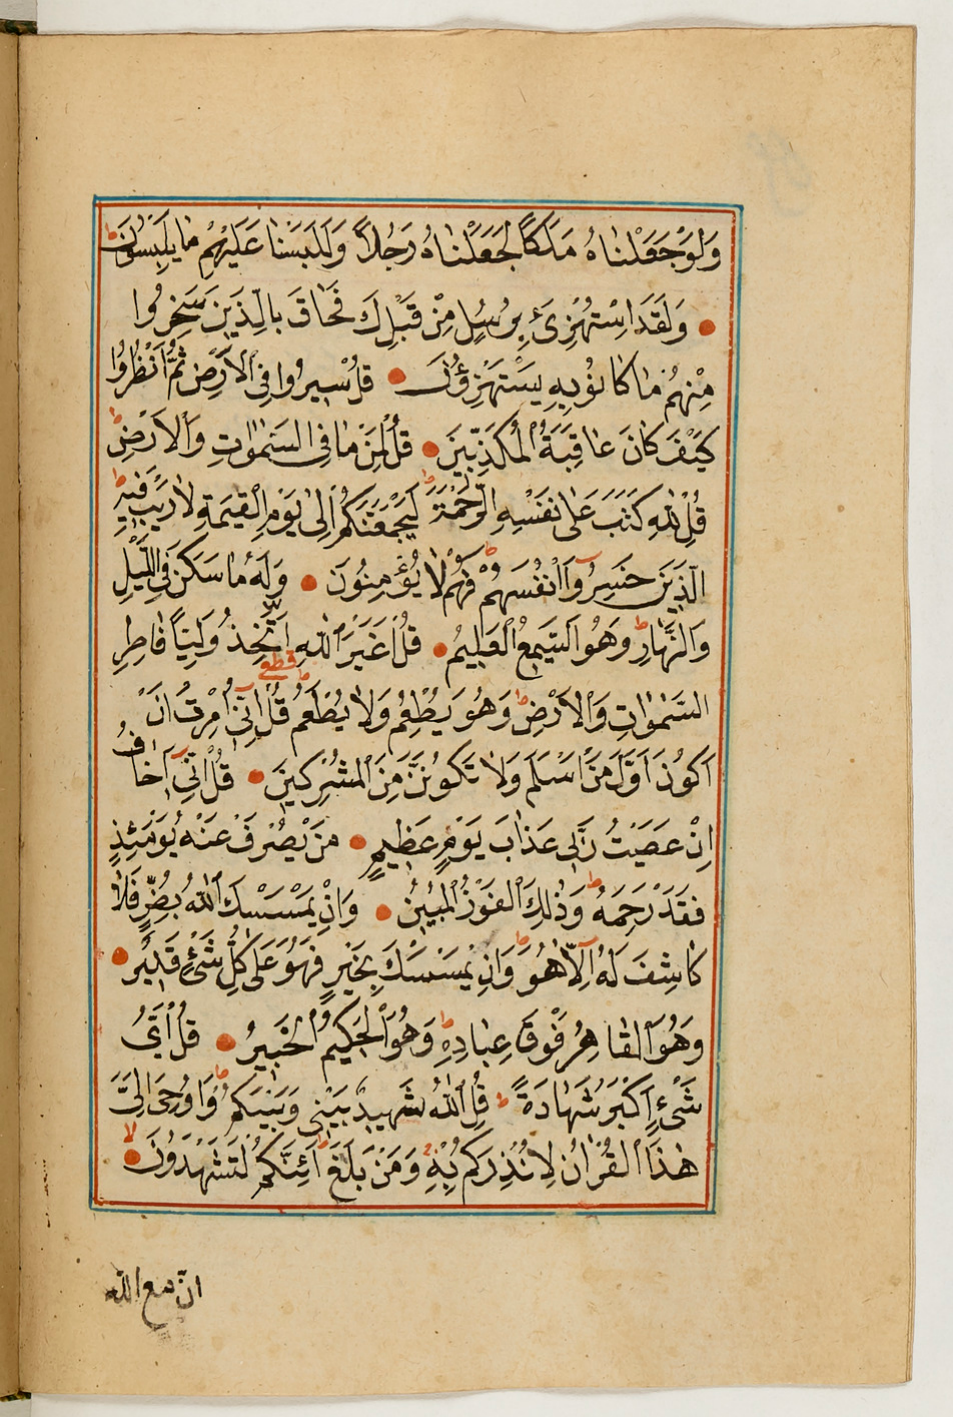 وَلَوْ جَعَلْنَاهُ مَلَكًا لَجَعَلْنَاهُ رَجُلًا وَلَلَبَسْنَا عَلَيْهِمْ مَا يَلْبِسُونَ ط
وَلَقَدِ اسْتُهْزِئَ بِرُسُلٍ مِنْ قَبْلِكَ فَحَاقَ بِالَّذِينَ سَخِرُوا
مِنْهُمْ مَا كَانُوا بِهِ يَسْتَهْزِؤُنَ قُلْ سِيرُوا فِي الْأَرْضِ ثُمَّ انْظُرُوا
كَيْفَ كَانَ عَاقِبَةُ الْمُكَذِّبِينَ قُلْ لِمَنْ مَا فِي السَّمٰوَاتِ وَالْأَرْضِ ط
قُلْ لِلّٰهِ كَتَبَ عَلٰى نَفْسِهِ الرَّحْمَةَ ط لَيَجْمَعَنَّكُمْ اِلٰى يَوْمِ الْقِيٰمَةِ لَا رَيْبَ فِيهِ ط
اَلَّذِينَ خَسِرُوا اَنْفُسَهُمْ فَهُمْ لَا يُؤْمِنُونَ وَلَهُ مَا سَكَنَ فِي اللَّيْلِ
وَالنَّهَارِ ط وَهُوَ السَّمِيعُ الْعَلِيمُ قُلْ اَغَيْرَ اللّٰهِ اَتَّخِذُ وَلِيًّا فَاطِرِ
السَّمٰوَاتِ وَالْأَرْضِ ط وَهُوَ يُطْعِمُ وَلَا يُطْعَمُ ط قطع قُلْ اِنِّي اُمِرْتُ اَنْ
اَكُونَ اَوَّلَ مَنْ اَسْلَمَ وَلَا تَكُونَنَّ مِنَ الْمُشْرِكِينَ قُلْ اِنِّي اَخَافُ
اِنْ عَصَيْتُ رَبِّي عَذَابَ يَوْمٍ عَظِيمٍ مَنْ يُصْرَفْ عَنْهُ يَوْمَئِذٍ
فَقَدْ رَحِمَهُ ط وَذٰلِكَ الْفَوْزُ الْمُبِينُ وَاِنْ يَمْسَسْكَ اللّٰهُ بِضُرٍّ فَلَا
كَاشِفَ لَهُ اِلَّا هُوَ ط وَاِنْ يَمْسَسْكَ بِخَيْرٍ فَهُوَ عَلٰى كُلِّ شَيْءٍ قَدِيرٌ
وَهُوَ الْقَاهِرُ فَوْقَ عِبَادِهِ ط وَهُوَ الْحَكِيمُ الْخَبِيرُ قُلْ اَيُّ
شَيْءٍ اَكْبَرُ شَهَادَةً ط قُلِ اللّٰهُ شَهِيدٌ بَيْنِي وَبَيْنَكُمْ ط وَاُوحِيَ اِلَيَّ
هٰذَا الْقُرْاٰنُ لِاُنْذِرَكُمْ بِهِ وَمَنْ بَلَغَ ط اَئِنَّكُمْ لَتَشْهَدُونَ لا
انّ مع الله